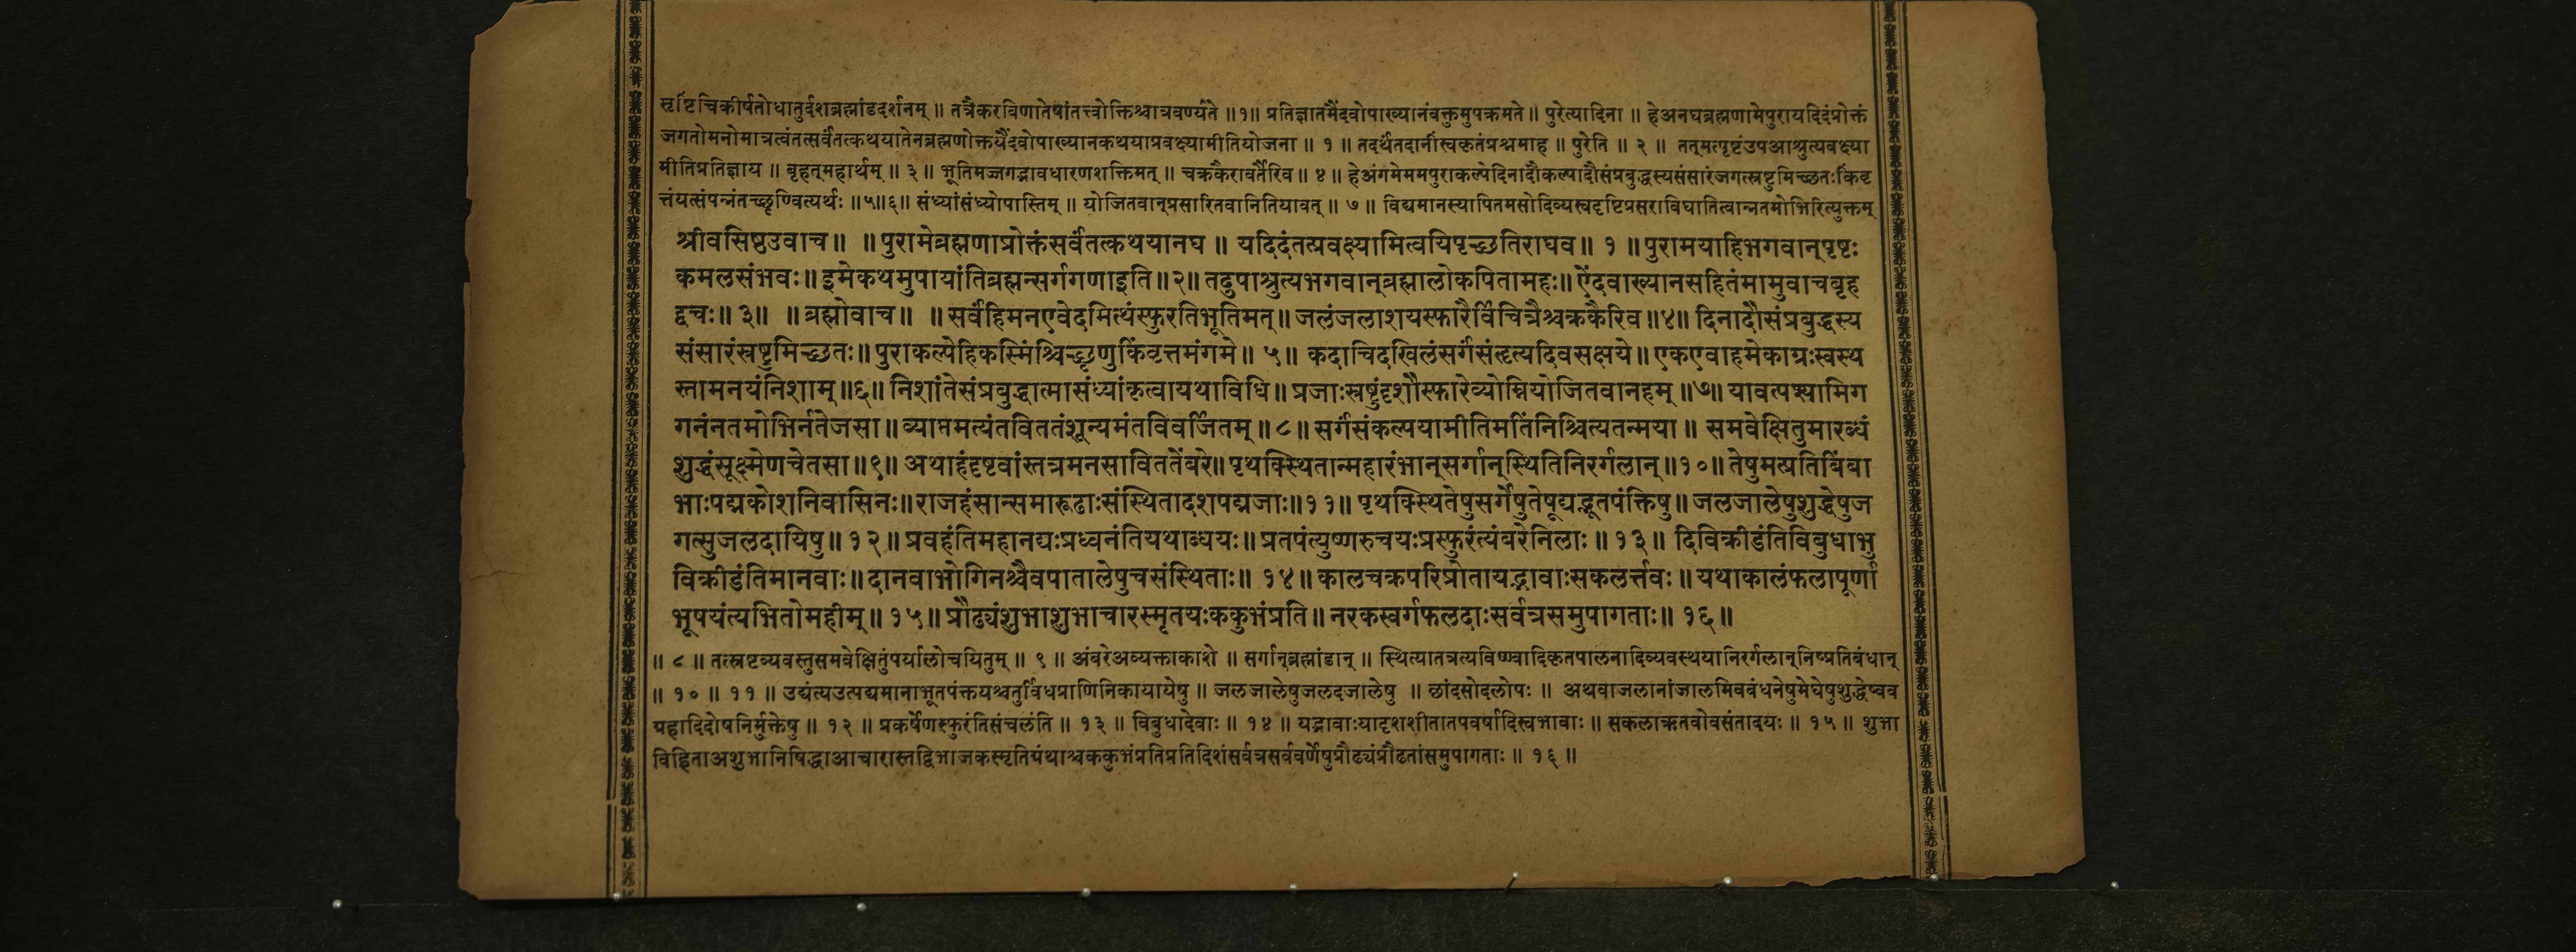 सृष्टिंचिकीर्षतोधातुर्दशब्रह्मांडदर्शनम् ॥ तत्रैकरविणातेषांतत्त्वोक्तिश्चात्रवर्ण्यते ॥१॥ प्रतिज्ञातमैंदवोपाख्यानंवक्तुमुपक्रमते ॥ पुरेत्यादिना ॥ हेअनघब्रह्मणामेपुरायदिदंप्रोक्तं
जगतोमनोमात्रत्वंतत्सर्वंतत्कथयातेनब्रह्मणोक्तयैंदवोपाख्यानकथयाप्रवक्ष्यामीतियोजना ॥ १ ॥ तदर्थंतदानींस्वकृतंप्रश्नमाह ॥ पुरेति ॥ २ ॥ तत्‌मत्पृष्टंउपआश्रुत्यवक्ष्या
मीतिप्रतिज्ञाय ॥ बृहत्‌महार्थम् ॥ ३ ॥ भूतिमज्जगद्भावधारणशक्तिमत् ॥ चक्रकैरावर्तैरिव ॥ ४ ॥ हेअंगमेममपुराकल्पेदिनादौकल्पादौसंप्रबुद्धस्यसंसारंजगत्स्रष्टुमिच्छतःकिंवृ
त्तंयत्संपन्नंतच्छृण्वित्यर्थः ॥५॥६॥ संध्यांसंध्योपास्तिम् ॥ योजितवान्‌प्रसारितवानितियावत् ॥ ७ ॥ विद्यमानस्यापितमसोदिव्यस्वदृष्टिप्रसराविघातित्वान्नतमोभिरित्युक्तम्
श्रीवसिष्ठउवाच ॥ ॥ पुरामेब्रह्मणाप्रोक्तंसर्वंतत्कथयानघ ॥ यदिदंतत्प्रवक्ष्यामित्वयिपृच्छतिराघव ॥ १ ॥ पुरामयाहिभगवान्‌पृष्टः
कमलसंभवः ॥ इमेकथमुपायांतिब्रह्मन्सर्गगणाइति ॥२॥ तदुपाश्रुत्यभगवान्‌ब्रह्मालोकपितामहः ॥ ऐंदवाख्यानसहितंमामुवाचबृह
द्वचः ॥ ३ ॥ ॥ ब्रह्मोवाच ॥ ॥ सर्वंहिमनएवेदमित्थंस्फुरतिभूतिमत् ॥ जलंजलाशयस्फारैर्विचित्रैश्चक्रकैरिव ॥४॥ दिनादौसंप्रबुद्धस्य
संसारंस्रष्टुमिच्छतः ॥ पुराकल्पेहिकस्मिंश्चिच्छृणुकिंवृत्तमंगमे ॥ ५ ॥ कदाचिदखिलंसर्गंसंहृत्यदिवसक्षये ॥ एकएवाहमेकाग्रःस्वस्थ
स्तामनयंनिशाम् ॥६॥ निशांतेसंप्रबुद्धात्मासंध्यांकृत्वायथाविधि ॥ प्रजाःस्रष्टुंदृशौस्फारेव्योम्नियोजितवानहम् ॥७॥ यावत्पश्यामिग
गनंनतमोभिर्नतेजसा ॥ व्याप्तमत्यंतविततंशून्यमंतविवर्जितम् ॥ ८ ॥ सर्गंसंकल्पयामीतिमतिंनिश्चित्यतन्मया ॥ समवेक्षितुमारब्धं
शुद्धंसूक्ष्मेणचेतसा ॥९॥ अथाहंदृष्टवांस्तत्रमनसाविततेंबरे ॥ पृथक्स्थितान्महारंभान्‌सर्गान्‌स्थितिनिरर्गलान् ॥१०॥ तेषुमत्प्रतिबिंबा
भाःपद्मकोशनिवासिनः ॥ राजहंसान्समारूढाःसंस्थितादशपद्मजाः ॥११॥ पृथक्स्थितेषुसर्गेषुतेषूद्यद्भूतपंक्तिषु ॥ जलजालेषुशुद्धेषुज
गत्सुजलदायिषु ॥ १२ ॥ प्रवहंतिमहानद्यःप्रध्वनंतियथाब्धयः ॥ प्रतपंत्युष्णरुचयःप्रस्फुरंत्यंबरेनिलाः ॥ १३ ॥ दिविक्रीडंतिविबुधाभु
विक्रीडंतिमानवाः ॥ दानवाभोगिनश्चैवपातालेषुचसंस्थिताः ॥ १४ ॥ कालचक्रपरिप्रोतायद्भावाःसकलर्त्तवः ॥ यथाकालंफलापूर्णा
भूषयंत्यभितोमहीम् ॥ १५ ॥ प्रौढ्यंशुभाशुभाचारस्मृतयःककुभंप्रति ॥ नरकस्वर्गफलदाःसर्वत्रसमुपागताः ॥ १६ ॥
॥ ८ ॥ तत्स्रष्टव्यवस्तुसमवेक्षितुंपर्यालोचयितुम् ॥ ९ ॥ अंबरेअव्यक्ताकाशे ॥ सर्गान्‌ब्रह्मांडान् ॥ स्थित्यातत्रत्यविष्ण्वादिकृतपालनादिव्यवस्थयानिरर्गलान्‌निष्प्रतिबंधान्
॥ १० ॥ ११ ॥ उद्यंत्यउत्पद्यमानाभूतपंक्तयश्चतुर्विधप्राणिनिकायायेषु ॥ जलजालेषुजलदजालेषु ॥ छांदसोदलोपः ॥ अथवाजलानांजालमिवबंधनेषुमेघेषुशुद्धेष्वव
ग्रहादिदोषनिर्मुक्तेषु ॥ १२ ॥ प्रकर्षेणस्फुरंतिसंचलंति ॥ १३ ॥ विबुधादेवाः ॥ १४ ॥ यद्भावाःयादृशशीतातपवर्षादिस्वभावाः ॥ सकलाऋतवोवसंतादयः ॥ १५ ॥ शुभा
विहिताअशुभानिषिद्धाआचारास्तद्विभाजकस्मृतिग्रंथाश्चककुभंप्रतिप्रतिदिशंसर्वत्रसर्ववर्णेषुप्रौढ्यंप्रौढतांसमुपागताः ॥ १६ ॥